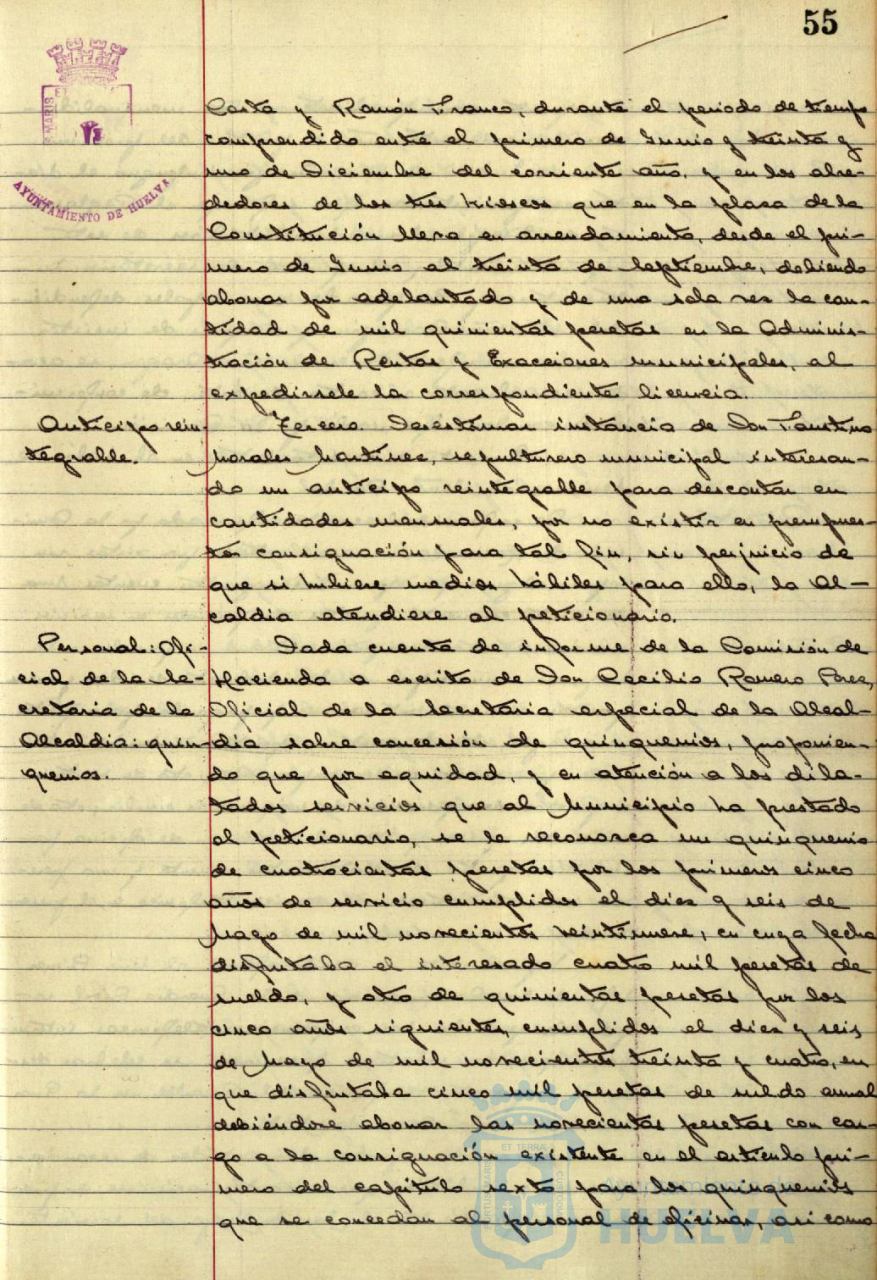 55
AYUNTAMIENTO DE HUELVA
Costa y Ramón Franco, durante el periodo de tiempo
comprendido entre el primero de Junio y treinta y
uno de Diciembre del corriente año, y en los alre-
dedores de los tres kioscos que en la plaza de la
Constitución lleva en arrendamiento, desde el pri-
mero de Junio al treinta de Septiembre, debiendo
abonar por adelantado y de una sola vez la can-
tidad de mil quinientas pesetas en la Adminis-
tración de Rentas y Exacciones municipales, al
expedirsele la correspondiente licencia.
Anticipo rein-
tegrable.
Tercero. Desestimar instancia de Don Faustino
Morales Martinez, sepulturero municipal interesan-
do un anticipo reintegrable para descontar en
cantidades mensuales, por no existir en presupues-
to consignación para tal fin, sin perjuicio de
que si hubiere medios hábiles para ello, la Al-
caldia atendiese al peticionario.
Personal: Ofi-
cial de la Se-
cretaria de la
Alcaldia: quin-
quenios.
Dada cuenta de informe de la Comisión de
Hacienda a escrito de Don Cecilio Romero Perez,
Oficial de la Secretaria especial de la Alcal-
dia sobre concesión de quinquenios, proponien-
do que por equidad, y en atención a los dila-
tados servicios que al Municipio ha prestado
el peticionario, se le reconozca un quinquenio
de cuatrocientas pesetas por los primeros cinco
años de servicio cumplidos el diez y seis de
Mayo de mil novecientos veintinueve, en cuya fecha
disfrutaba el interesado cuatro mil pesetas de
sueldo, y otro de quinientas pesetas por los
cinco años siguientes, cumplidos el diez y seis
de Mayo de mil novecientos treinta y cuatro, en
que disfrutaba cinco mil pesetas de sueldo anual
debiéndose abonar las novecientas pesetas con car-
go a la consignación existente en el articulo pri-
mero del capitulo sexto para los quinquenios
que se concedan al personal de oficinas, asi como
HUELVA